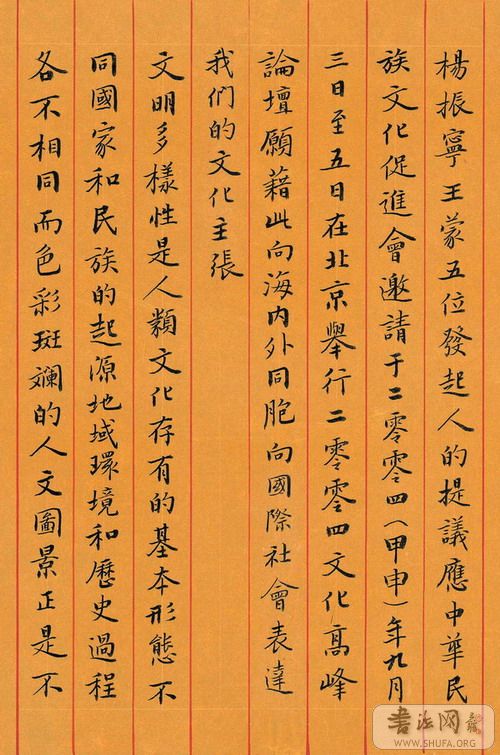 楊振寧王蒙五位發起人的提議應中華民
族文化促進會邀請于二零零四（甲申）年九月
三日至五日在北京舉行二零零四文化高峰
論壇願藉此向海内外同胞向國際社會表達
我們的文化主張
文明多樣性是人類文化存有的基本形態不
同國家和民族的起源地域環境和歷史過程
各不相同而色彩斑斕的人文圖景正是不
書法网
WWW.SHUFA.ORG